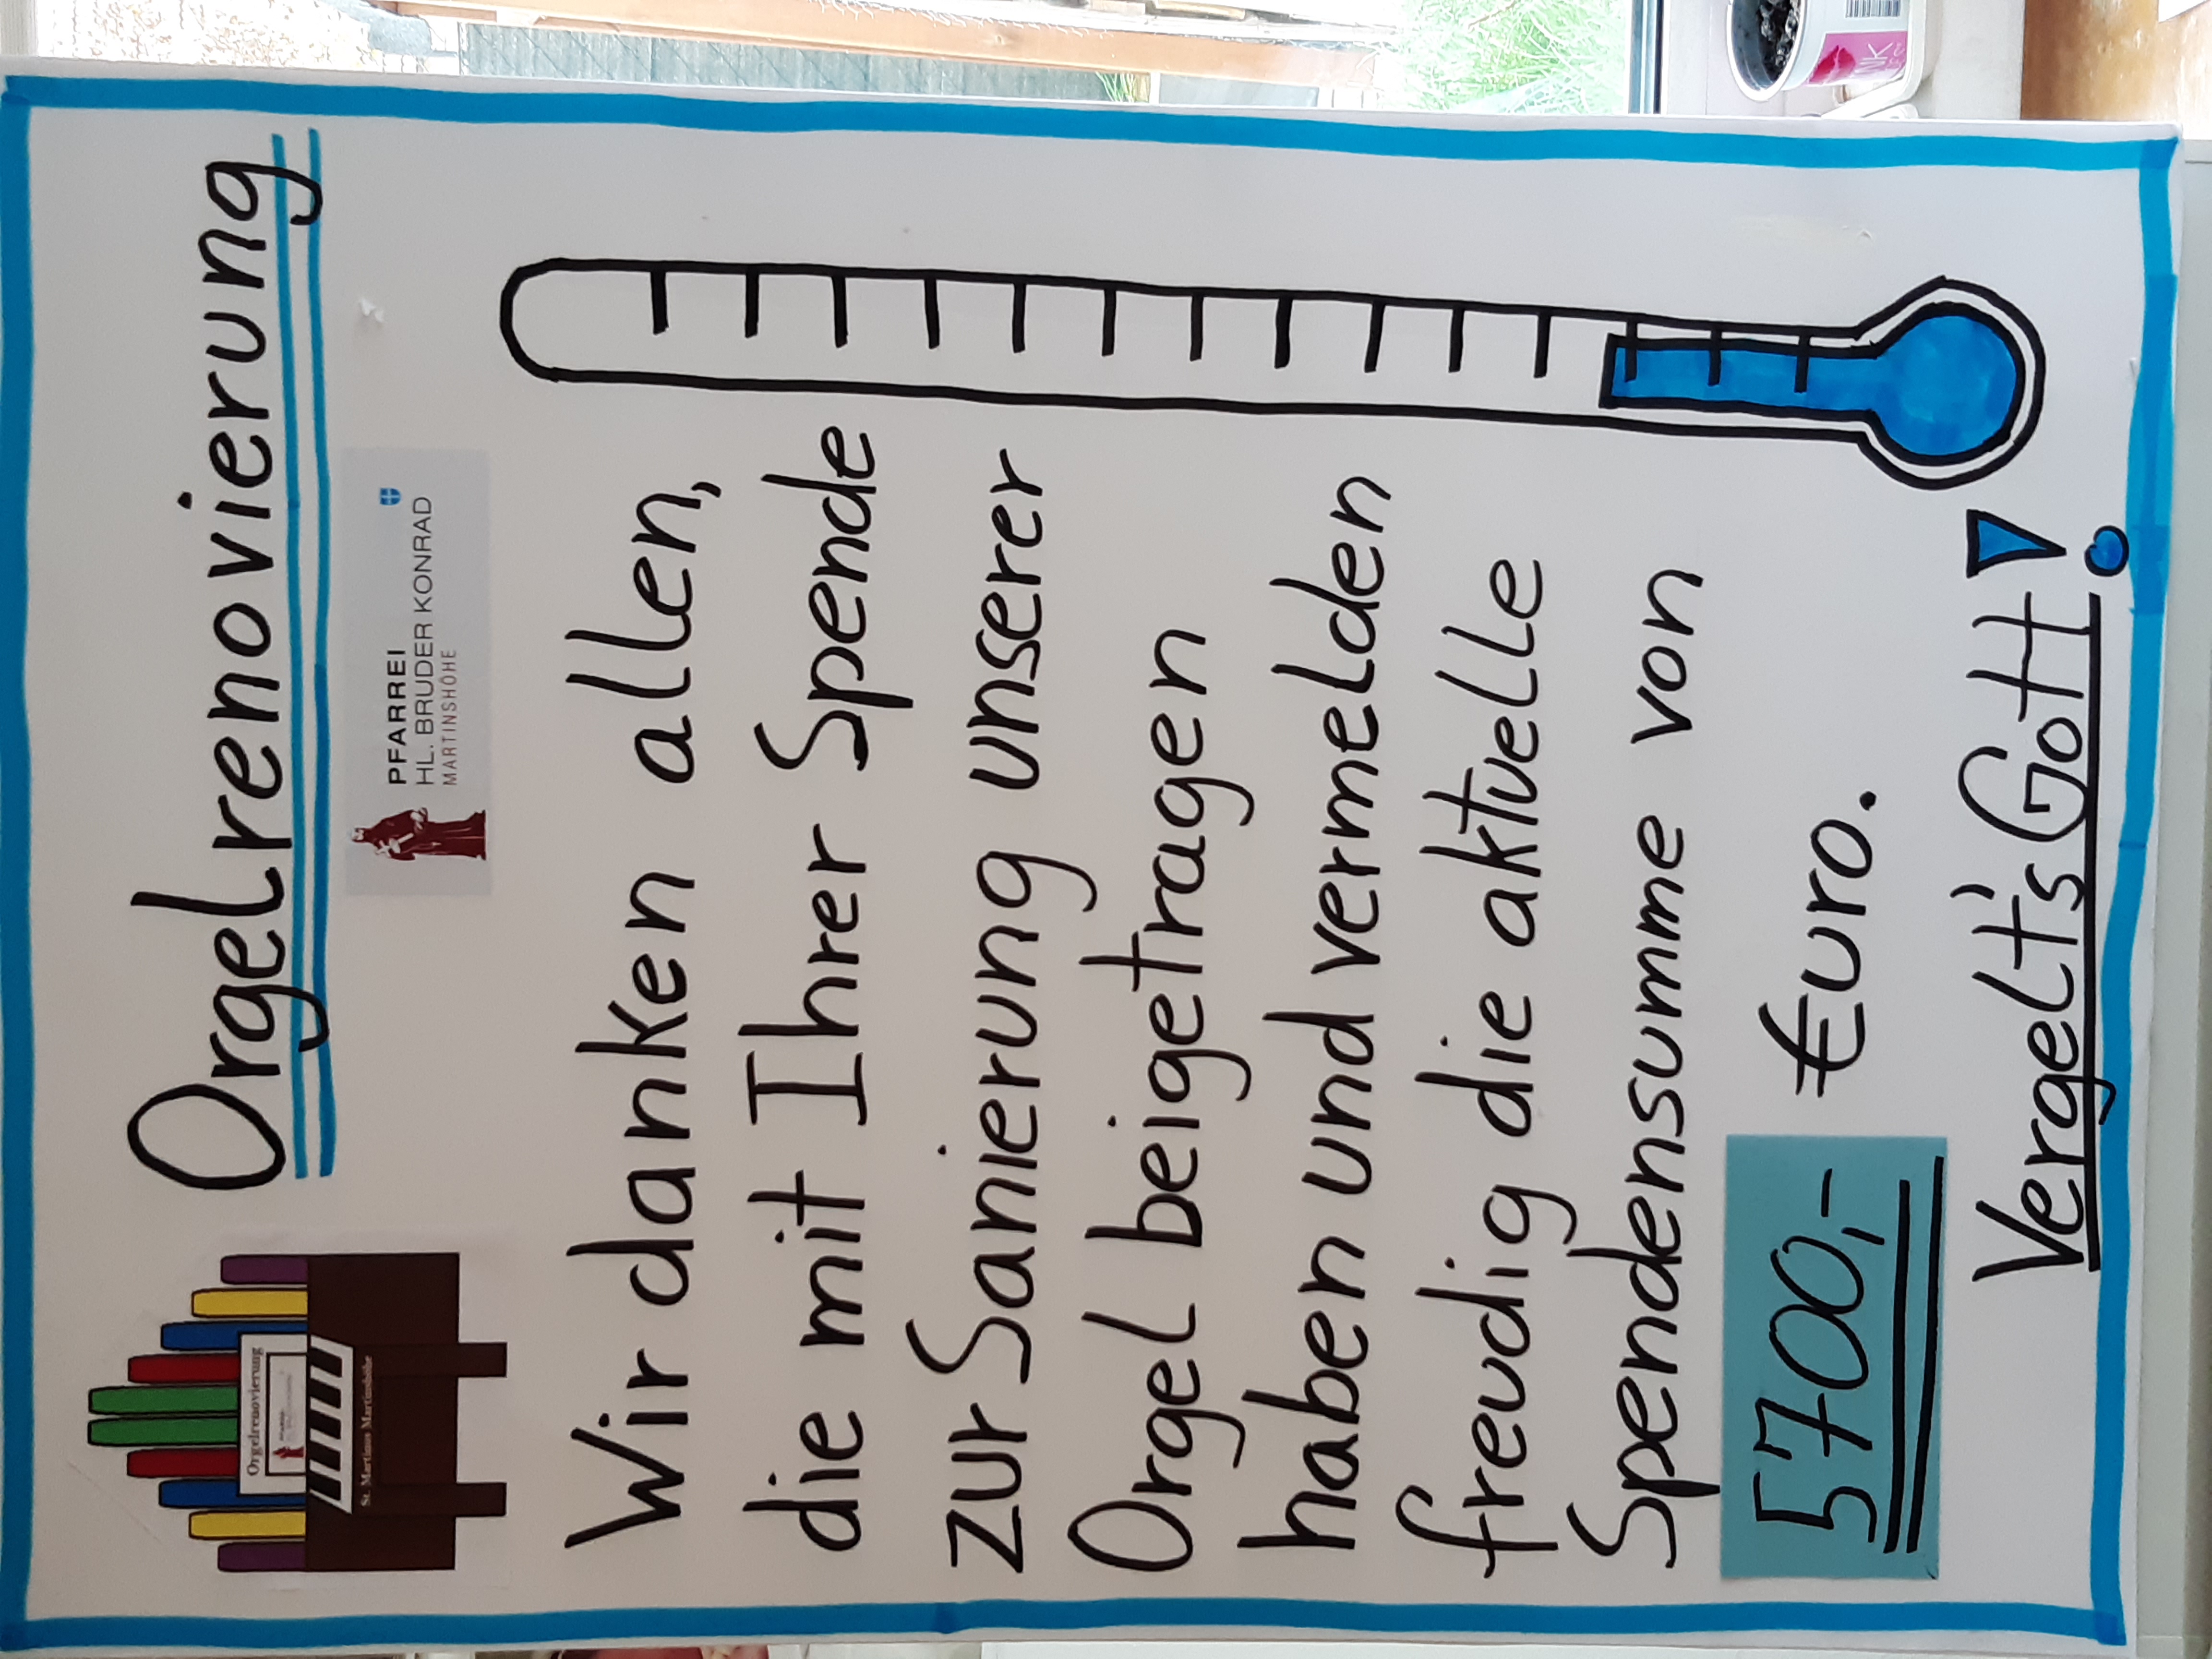 Orgelrenovierung
Orgelrenovierung
St. Martinus Martinshöhe
PFARREI
HL. BRUDER KONRAD
MARTINSHÖHE
Wir danken allen,
die mit Ihrer Spende
zur Sanierung unserer
Orgel beigetragen
haben und vermelden
freudig die aktuelle
Spendensumme von
5700,- €uro.
Vergelt's Gott!